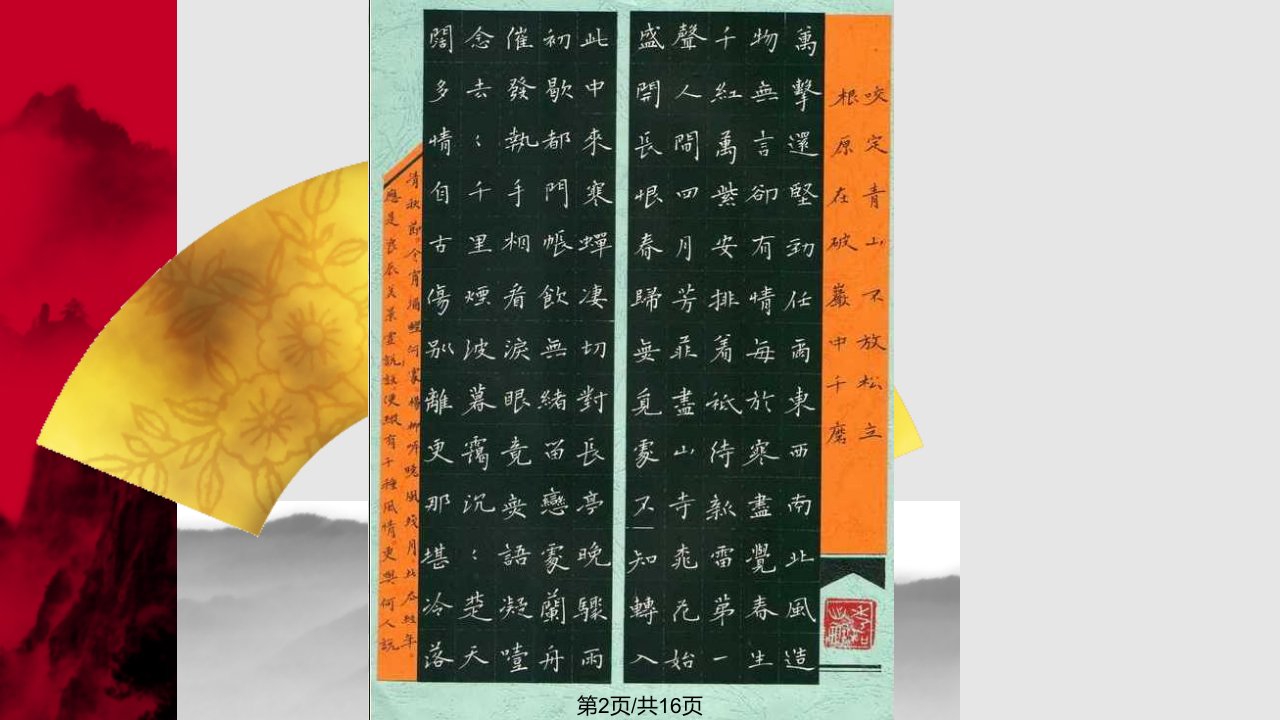 咬定青山不放松立
根原在破巖中千磨
萬擊還堅劲任雨東西南北風造
物無言卻有情每於寒盡覺春生
千紅萬紫安排着祇待新雷第一
聲人間四月芳菲盡山寺桃花始
盛開長恨春歸無覓處不知轉入
此中來寒蟬凄切對長亭晚驟雨
初歇都門帳飲無緒留戀處蘭舟
催發執手相看淚眼竟無語凝噎
念去〻千里煙波暮靄沉〻楚天
闊多情自古傷別離更那堪冷落
清秋節。今宵酒醒何處。楊柳岸曉風殘月。此去經年。
應是良辰美景虛設。便縱有千種風情。更與何人說
第2页/共16页